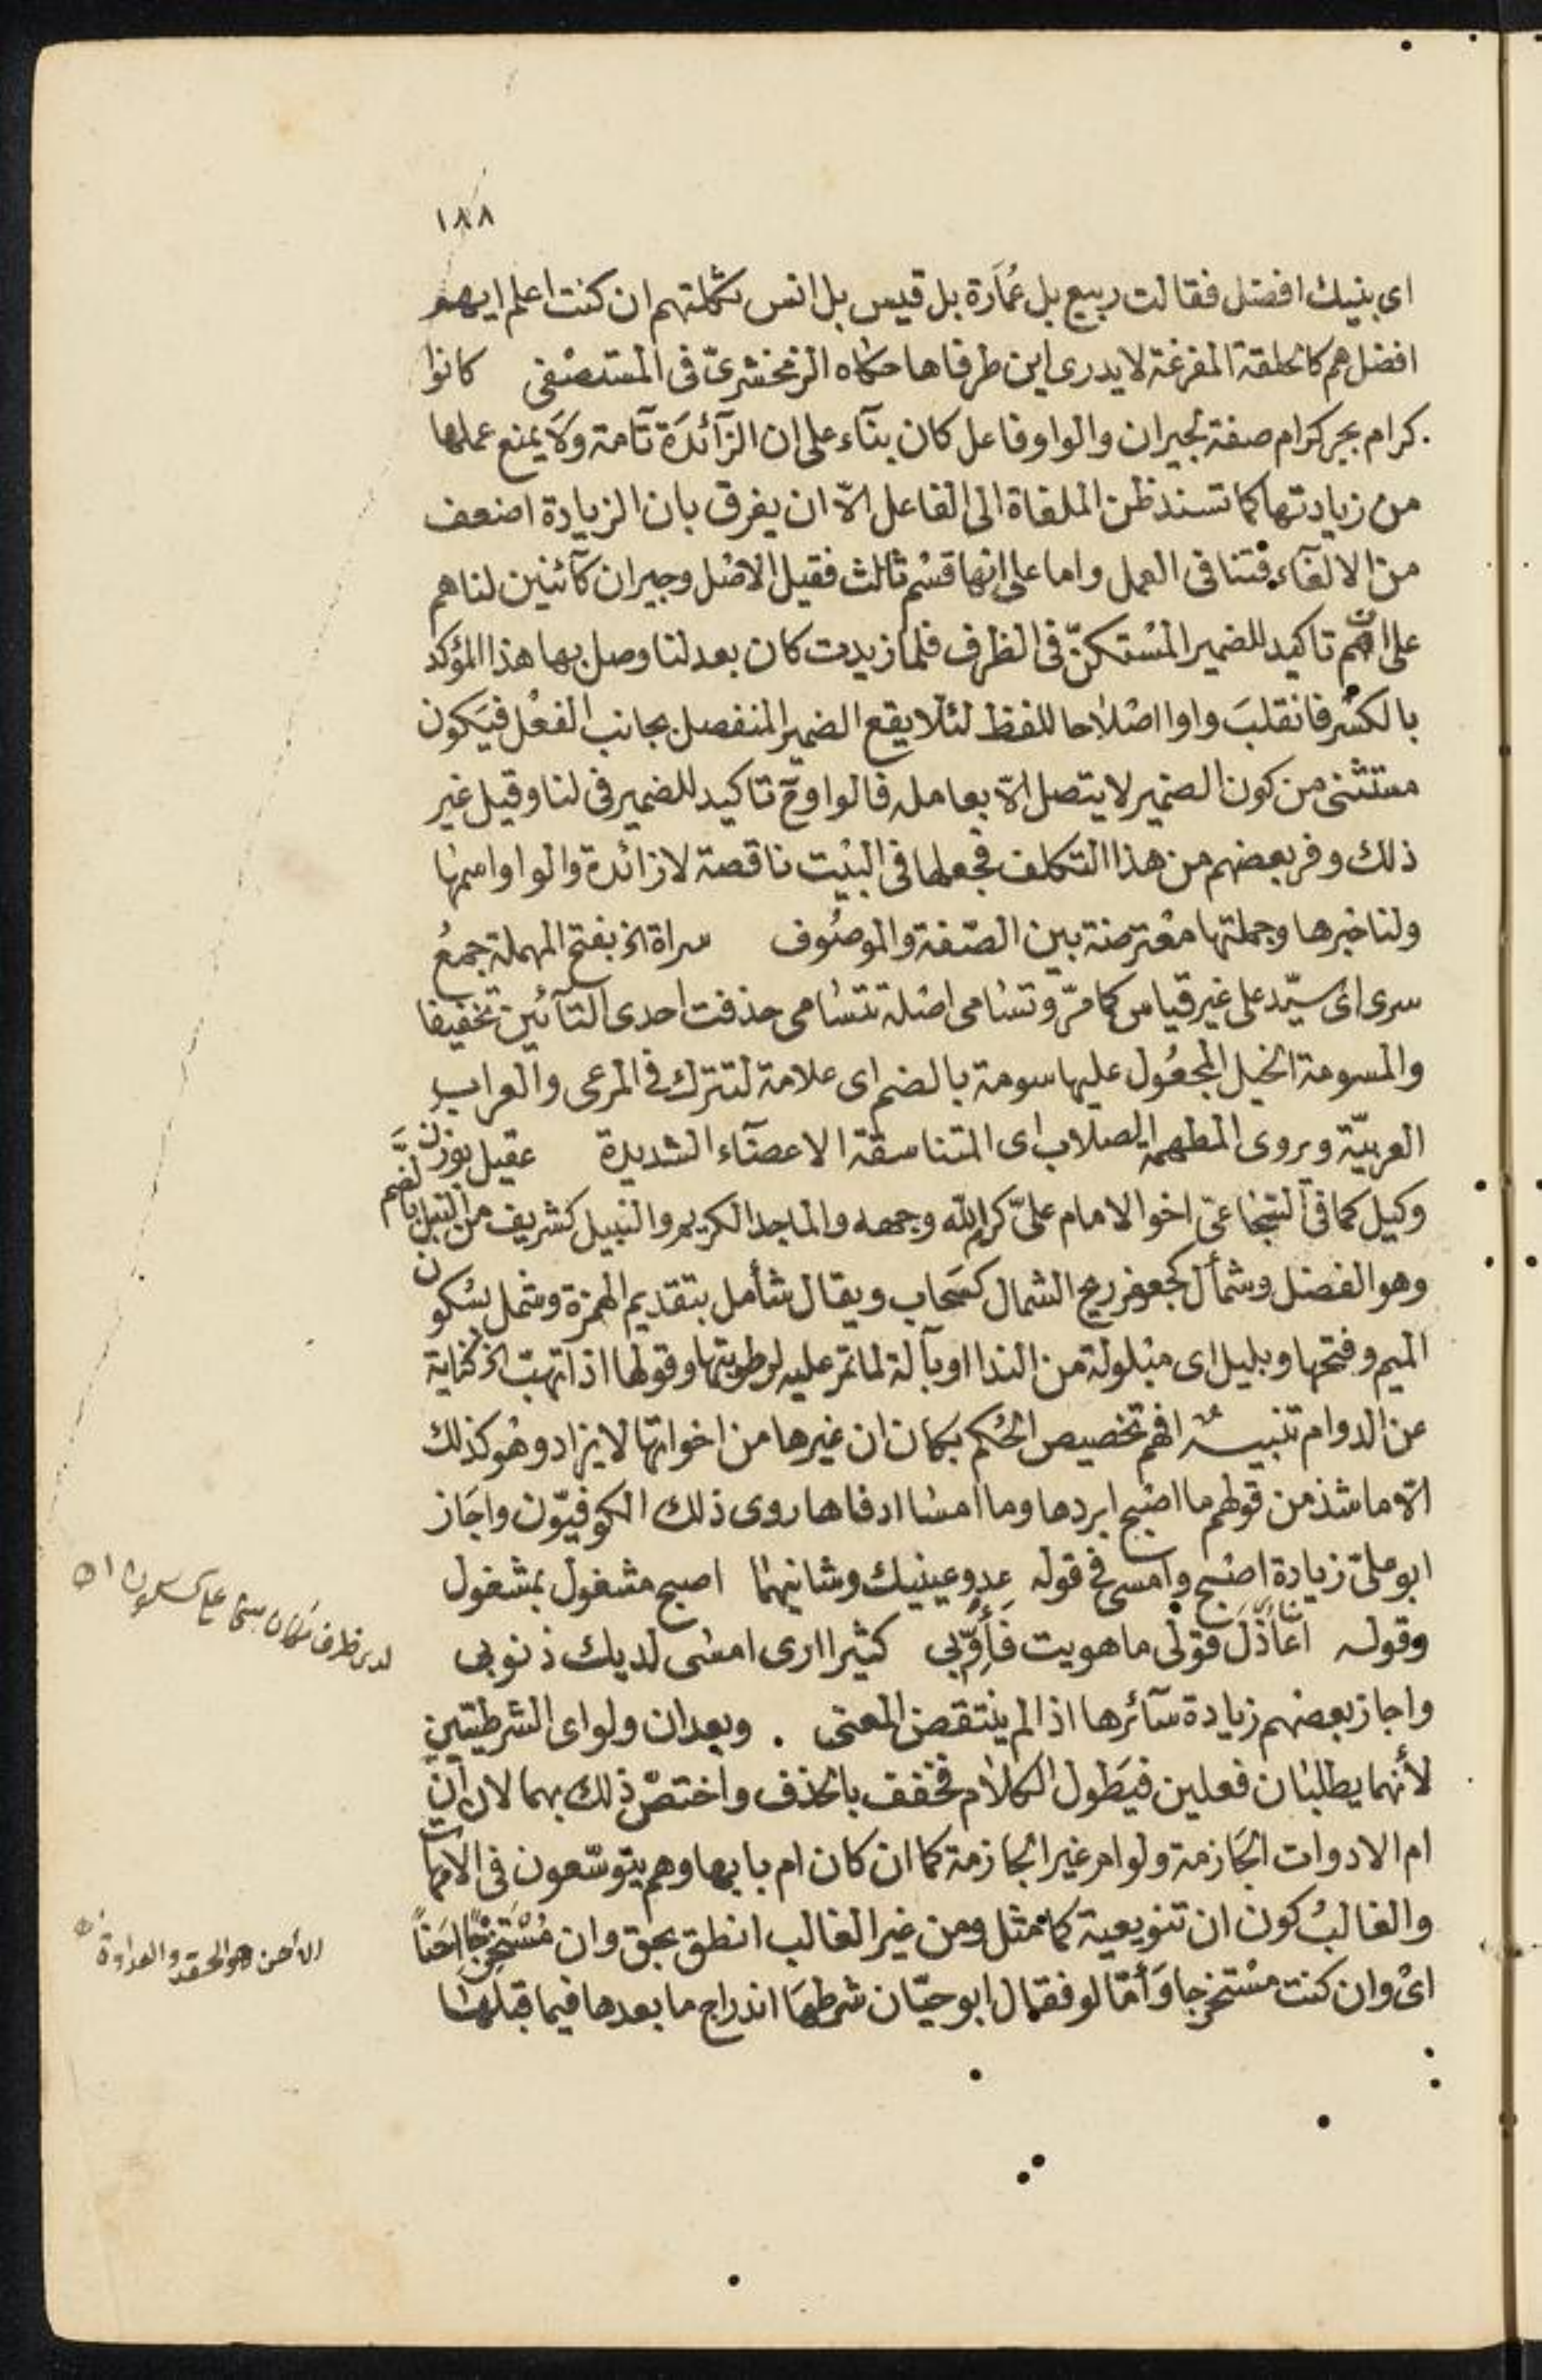 ١٨٨
اى بنيك افضل فقالت ربيع بل عُمَارَة بل قيس بل انس ثكلتهم ان كنت اعلم ايهم
افضل هم كالحلقة المفرغة لا يدرى اين طرفاها حكاه الزمخشرىّ فى المستصْفى كانوا
كرام بجر كرام صفة لجيران والواو فاعل كان بنآء على ان الزآئدَة تآمة وَلَا يمنع عملها
من زيادتها كما تسند ظن الملغاة الى الفاعل الاّ ان يفرق بان الزيادة اضعف
من الالغآء فتنافى العمل واما على انها قسْم ثالث فقيل الاصْل وجيران كآئنين لنا هم
على ان هم تاكيد للضمير المسْتكنّ فى الظرف فلما زيدت كان بعد لنا وصل بها هذا المؤكد
بالكسْر فانقلبَ واوا اصْلاحا للفظ لئلا يقع الضمير المنفصل بجانب الفعْل فيَكون
مستثنى من كون الضمير لا يتصل الاّ بعامله فالواو ح تاكيد للضمير فى لنا وقيل غير
ذلك وفر بعضهم من هذا التكلف فجعلها فى البيْت ناقصة لا زائدة والواو اسمها
ولنا خبرها وجملتها معْترضة بين الصّفة والموصُوف سراة الخ بفتح المهملة جمعُ
سرى اى سيّد على غير قياس كما مرّ وتسَامى اصْله تتسَامى حذفت احدى التآئين تخفيفا
والمسومة الخيل المجعُول عليها سومة بالضم اى علامة لتترك فى المرعى والعراب
العربيّة ويروى المطهمة الصلاب اى المتناسقة الاعضآء الشديدة عقيل بوزن
وكيل كما فى الشجاعى اخو الامام علىّ كرم الله وجهه والماجد الكريم والنبيل كشريف من النبل بالضم
وهو الفضل وشمأل كجعفر ريح الشمال كسَحاب ويقال شأمل بتقديم الهمزة وشمل بسُكون
الميم وفتحها وبليل اى مبْلولة من الندا او بآلة لما تمر عليه لرطوبتها وقولها اذا تهبت الخ كناية
عن الدوام تنبيـــهٌ افهم تخصيص الحُكم بكان ان غيرها من اخواتها لا يزاد وهُو كذلك
الاّ ما شذ من قولهم ما اصْبح ابردها وما امسَا ادفاها روى ذلك الكوفيّون واجَاز
ابو علىّ زيادة اصْبح وامسى فى قوله عدو عينيك وشانيهمَا اصبح مشغول بمشغول
وقوله اعَاذلَ قوْلى ما هويت فَأَوّبى كثيرا ارى امسْى لديك ذنوبى
واجاز بعضهم زيادة سآئرها اذا لم ينْتقصْ المعنى . وبعد ان ولو اى الشرطيّتين
لأنهما يطلبَان فعلين فيَطول الكلام فخفف بالحذف واختصْ ذلك بهما لان ان
ام الادوات الجَازمة ولو ام غير الجازمة كما ان كان ام بابها وهم يتوسّعون فى الامهات
والغالبُ كون ان تنويعية كما مثل ومن غير الغالب انطق بحق وان مُسْتَخْرِجًا اِحَنًا
اىْ وان كنت مسْتخرجا وَأمّا لو فقال ابو حيّان شرطهَا اندراج ما بعدها فيما قبلهَا
لدى ظرف
الأحن هو الحقد والعداوة